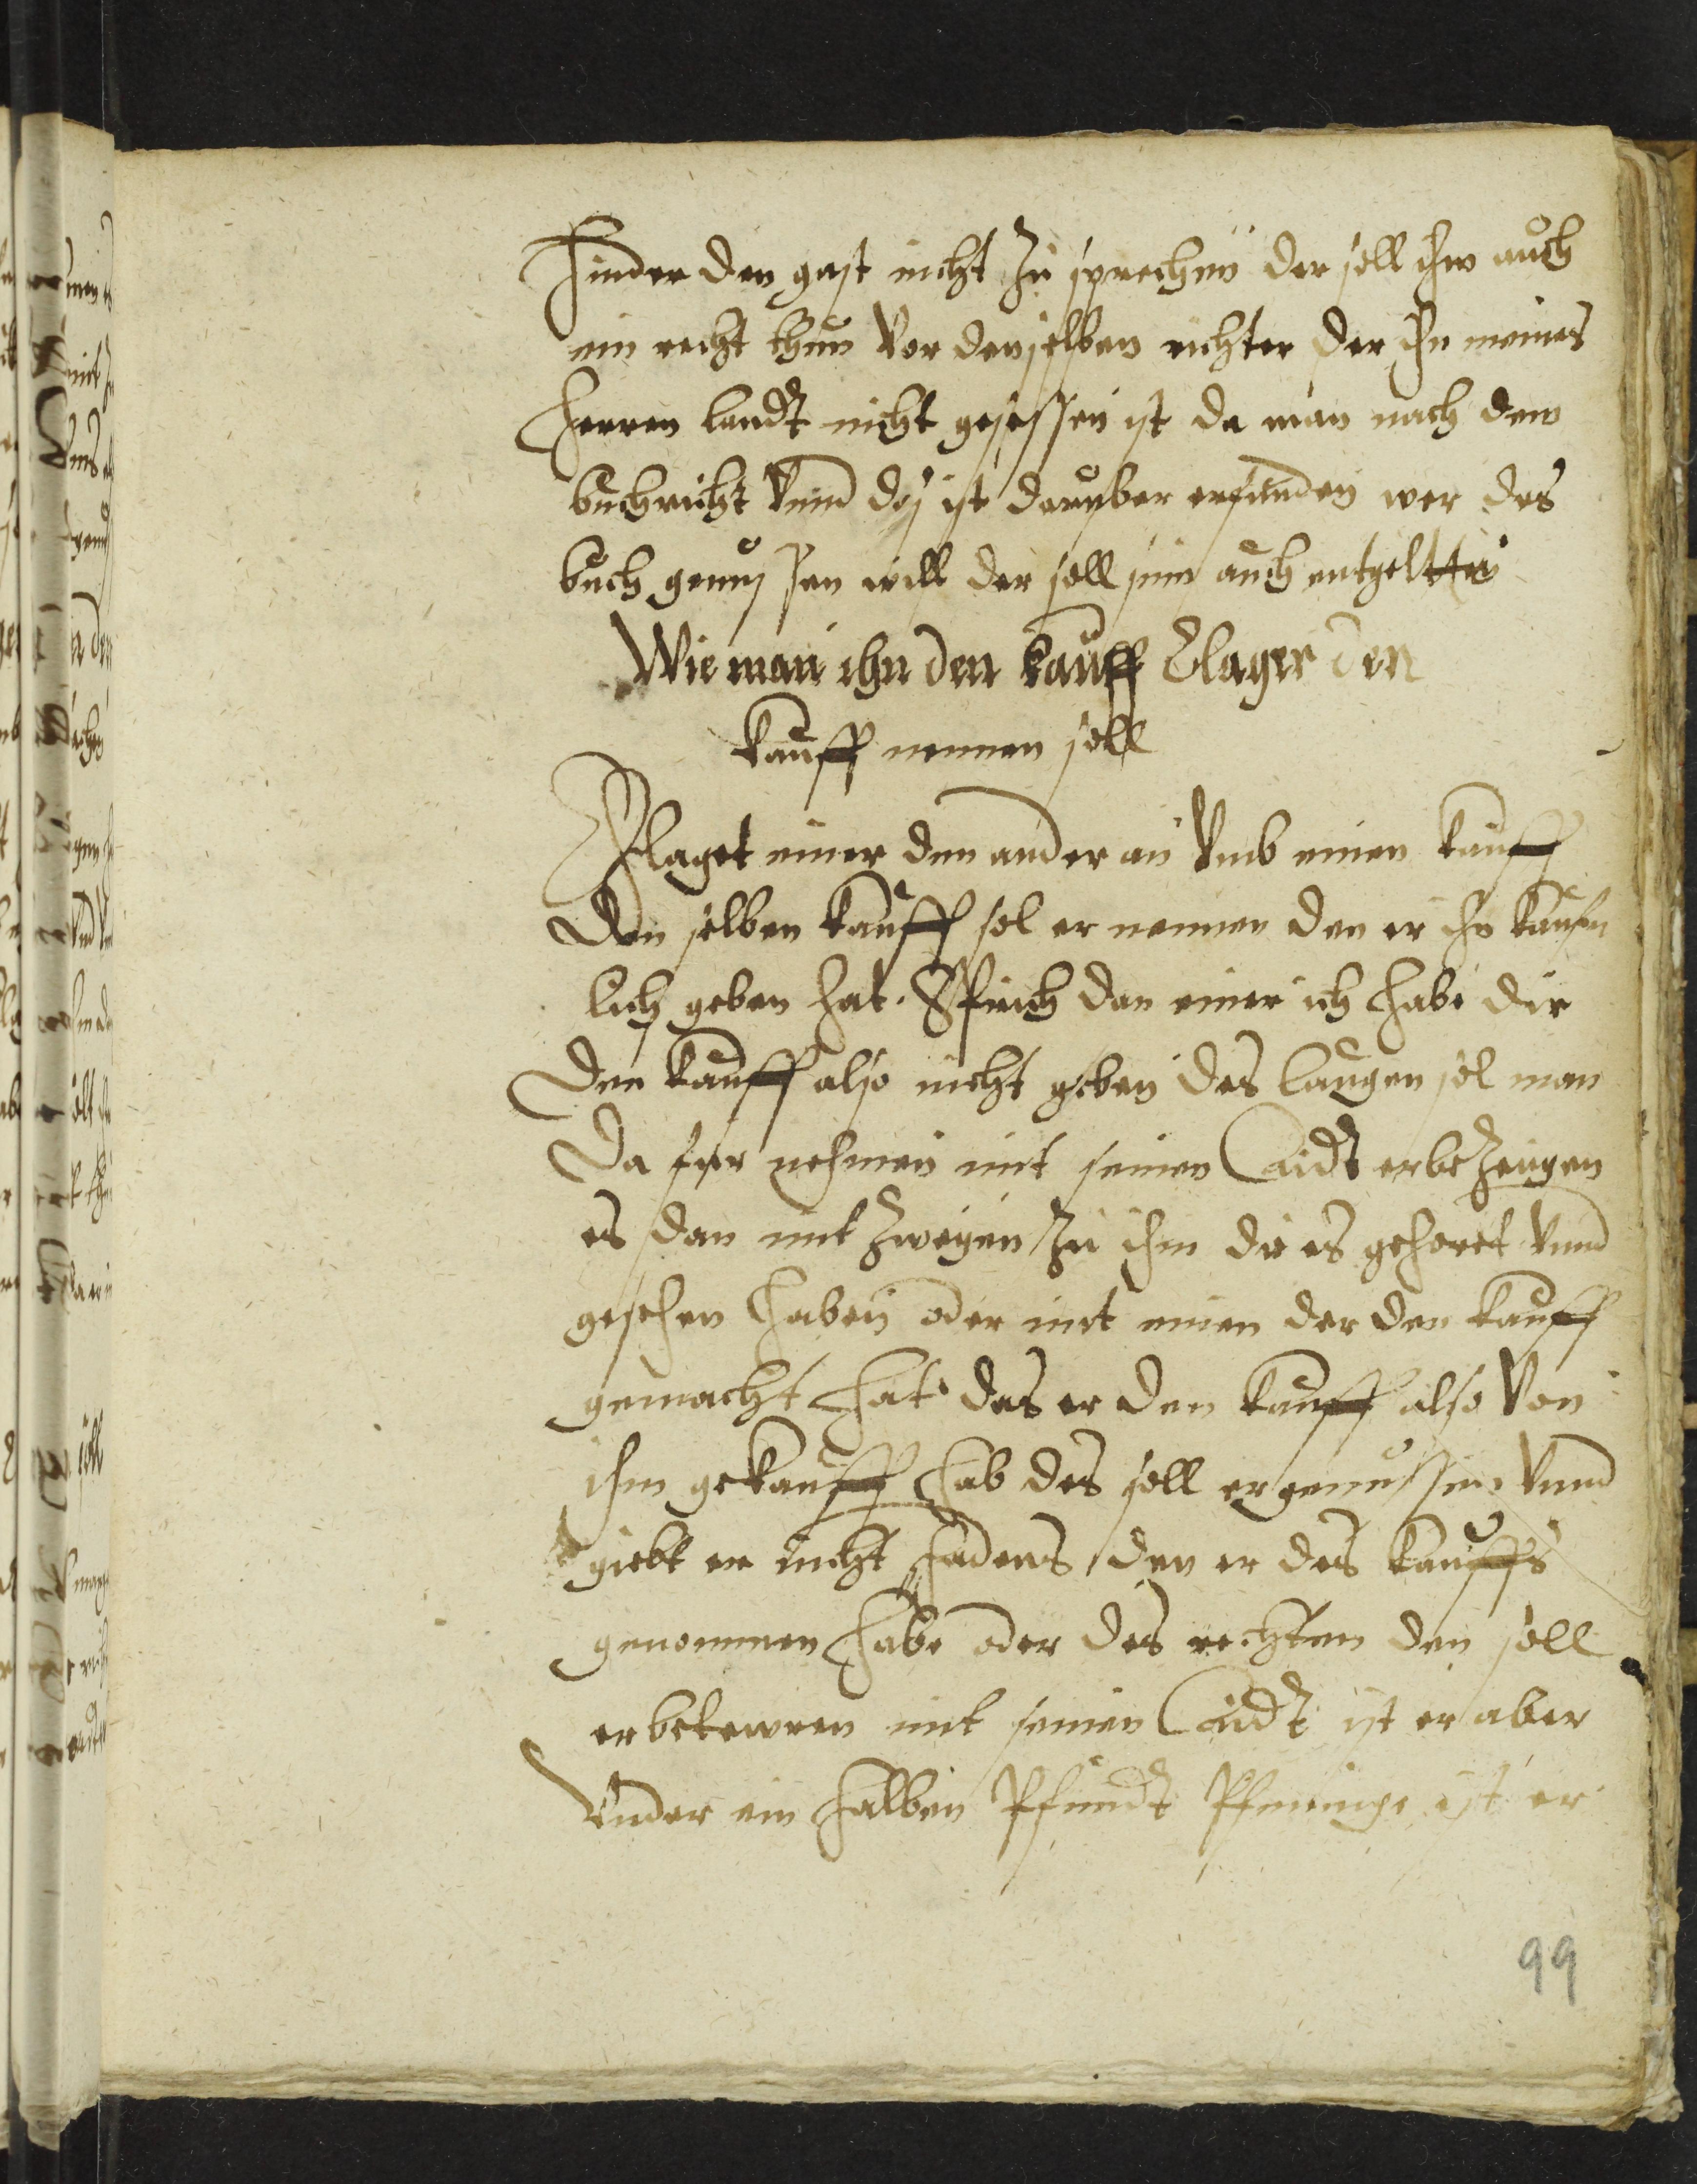 hinder den gast nicht zu sprechen der soll ihm auch
ein recht thun Vor denselben richter der ihn meines
herren landt nicht gesessen ist da man nach dem
buch richt Vnnd das ist daruber erfunden wer des
buch genuessen will der soll sein auch entgeltten
Wie man ihn den kauff Clager den
kauff nennen soll
Klaget einer den ander an Vmb einen kauff
den selben kauff sol er nennen den er ihn kauff
lich geben hat. Sprich dan einer ich habe dir
den kauff also nicht geben des laugen sol man
da fur nehmen mit seinen Eidt er bezeugen
es dan mit zweyen zu ihm die es gehoret Vnnd
gesehen haben oder mit einen der den kauff
gemacht hat das er den kauff also Von
ihm gekauff hab des soll er genuessen Vnnd
giebt er nicht den er des kauffs
genommen habe oder des rechten den soll
er bekewren mit seinen Eidt ist er aber
Vnder ein halben Pfundt Pfeninge ist er
99